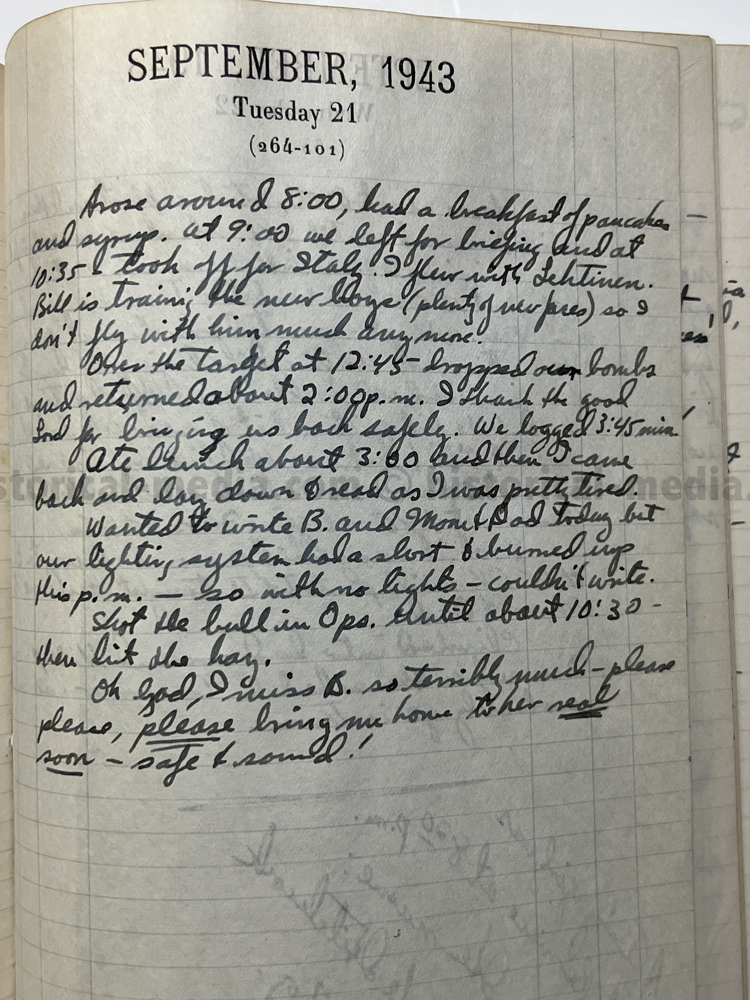 SEPTEMBER, 1943
Tuesday 21
(264-101)
Arose around 8:00, had a breakfast of pancakes
and syrup. At 9:00 we left for briefing and at
10:35 - took off for Italy. I flew with Lehtinen.
Bill is training the new boys (plenty of new ones) so I
don't fly with him much any more.
Over the target at 12:45 - dropped our bombs
and returned about 2:00 p.m. I thank the good
Lord for bringing us back safely. We logged 3:45 min
Ate lunch about 3:00 and then I came
back and lay down & read as I was pretty tired.
Wanted to write B. and Mom & Dad today but
our lighting system had a short & burned up
this p.m. — so with no lights - couldn't write.
Shot the bull in Ops. until about 10:30 -
then hit the hay.
Oh God, I miss B. so terribly much - please
please, please bring me home to her real
soon - safe & sound!